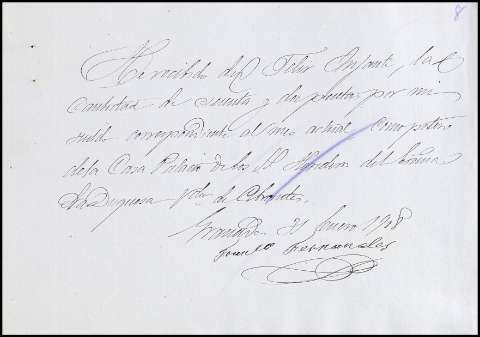 8
He recibido de D. Felix Infante, la
cantidad de sesenta y dos pesetas por mi
sueldo correspondiente al mes actual como portero
de la Casa Palacio de los SS. del
Duquesa de Abrantes.
Granada 31 Enero 1908
Fernandez